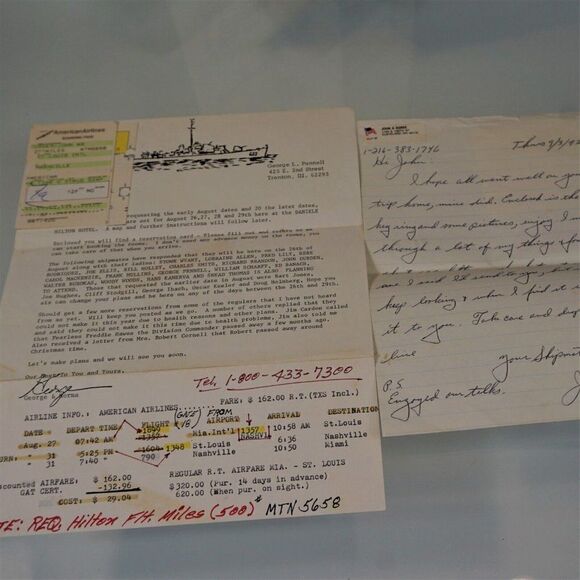 AmericanAirlines
George L. Pennell
425 E. 2nd Street
Trenton, Ill. 62293
requesting the early August dates and 20 the later dates,
are set for August 26,27, 28 and 29th here at the DANIELE
HILTON HOTEL. A map and further instructions will follow later.
Enclosed you will find a reservation card. Please fill out and return so we
can start booking the rooms. I don't need any advance money on the rooms, you
can take care of that when you arrive.
The following shipmates have responded that they will be here on the 26th of
August along with their ladies: STONE WYANT, LORRAINE ALLEN, FRED LILY, REBE
RODRIQUES, JOE ELLIS, BILL HOLLEY, CHARLES SMITH, RICHARD BRANDON, JOHN DURDEN,
CAROL MACKENZIE, FRANK MULLINS, GEORGE PENNELL, WILLIAM SCHAPPY, ED BANACH,
WALTER BURDICAS, WOODY WOODS,
TO ATTEND. Those that requested the earlier date in August were Bart Jones,
Joe Hughes, Cliff Stodgill, George Ibach, Oscar Exeler and Doug Helmberg, Hope you
six can change your plans and be here on any of the days between the 26th and 29th.
Should get a few more reservations from some of the regulars that I have not heard
from as yet. Will keep you posted as we go. A number of others replied that they
could not make it this year due to health reasons and other plans. Jim Cardon called
and said they could not make it this time due to health problems, Jim also told me
that Fearless Freddie Hawes the Division Commander passed away a few months ago.
Also received a letter from Mrs. Robert Cornell that Robert passed away around
Christmas time.
Let's make plans and we will see you soon.
Our Best To You and Yours,
George
George & Norma
Tel, 1-800-433-7300
FARE: $ 162.00 R.T.(TXS Incl.)
AIRLINE INFO.: AMERICAN AIRLINES.....
FLIGHT FROM
DATE DEPART TIME # AIRPORT ARRIVAL DESTINATION
Aug. 27 07:42 AM 1849 1357 Mia.Int'l 1357 10:58 AM St.Louis
" 31 5:25 PM 1604 1348 St.Louis NASHVILLE 6:36 Nashville
" 31 7:40 " 790 Nashville 10:50 Miami
Discounted AIRFARE: $ 162.00
GAT CERT. -132.96
COST: $ 29.04
REGULAR R.T. AIRFARE MIA. - ST. LOUIS
$320.00 (Pur. 14 days in advance)
620.00 (When pur. on sight.)
NOTE: REQ. Hilton Flt. Miles (500) # MTN 5658
1-216-383-1746
Thurs 9/3/92
Hi John.
I hope all went well on your
trip home, mine did. Enclosed is the
key ring and some pictures, enjoy. I
through a lot of my things
I said I'd send to you, but
keep looking & when I find it
it to you. Take care and
live
Your Shipmate
P.S.
Enjoyed our talks.